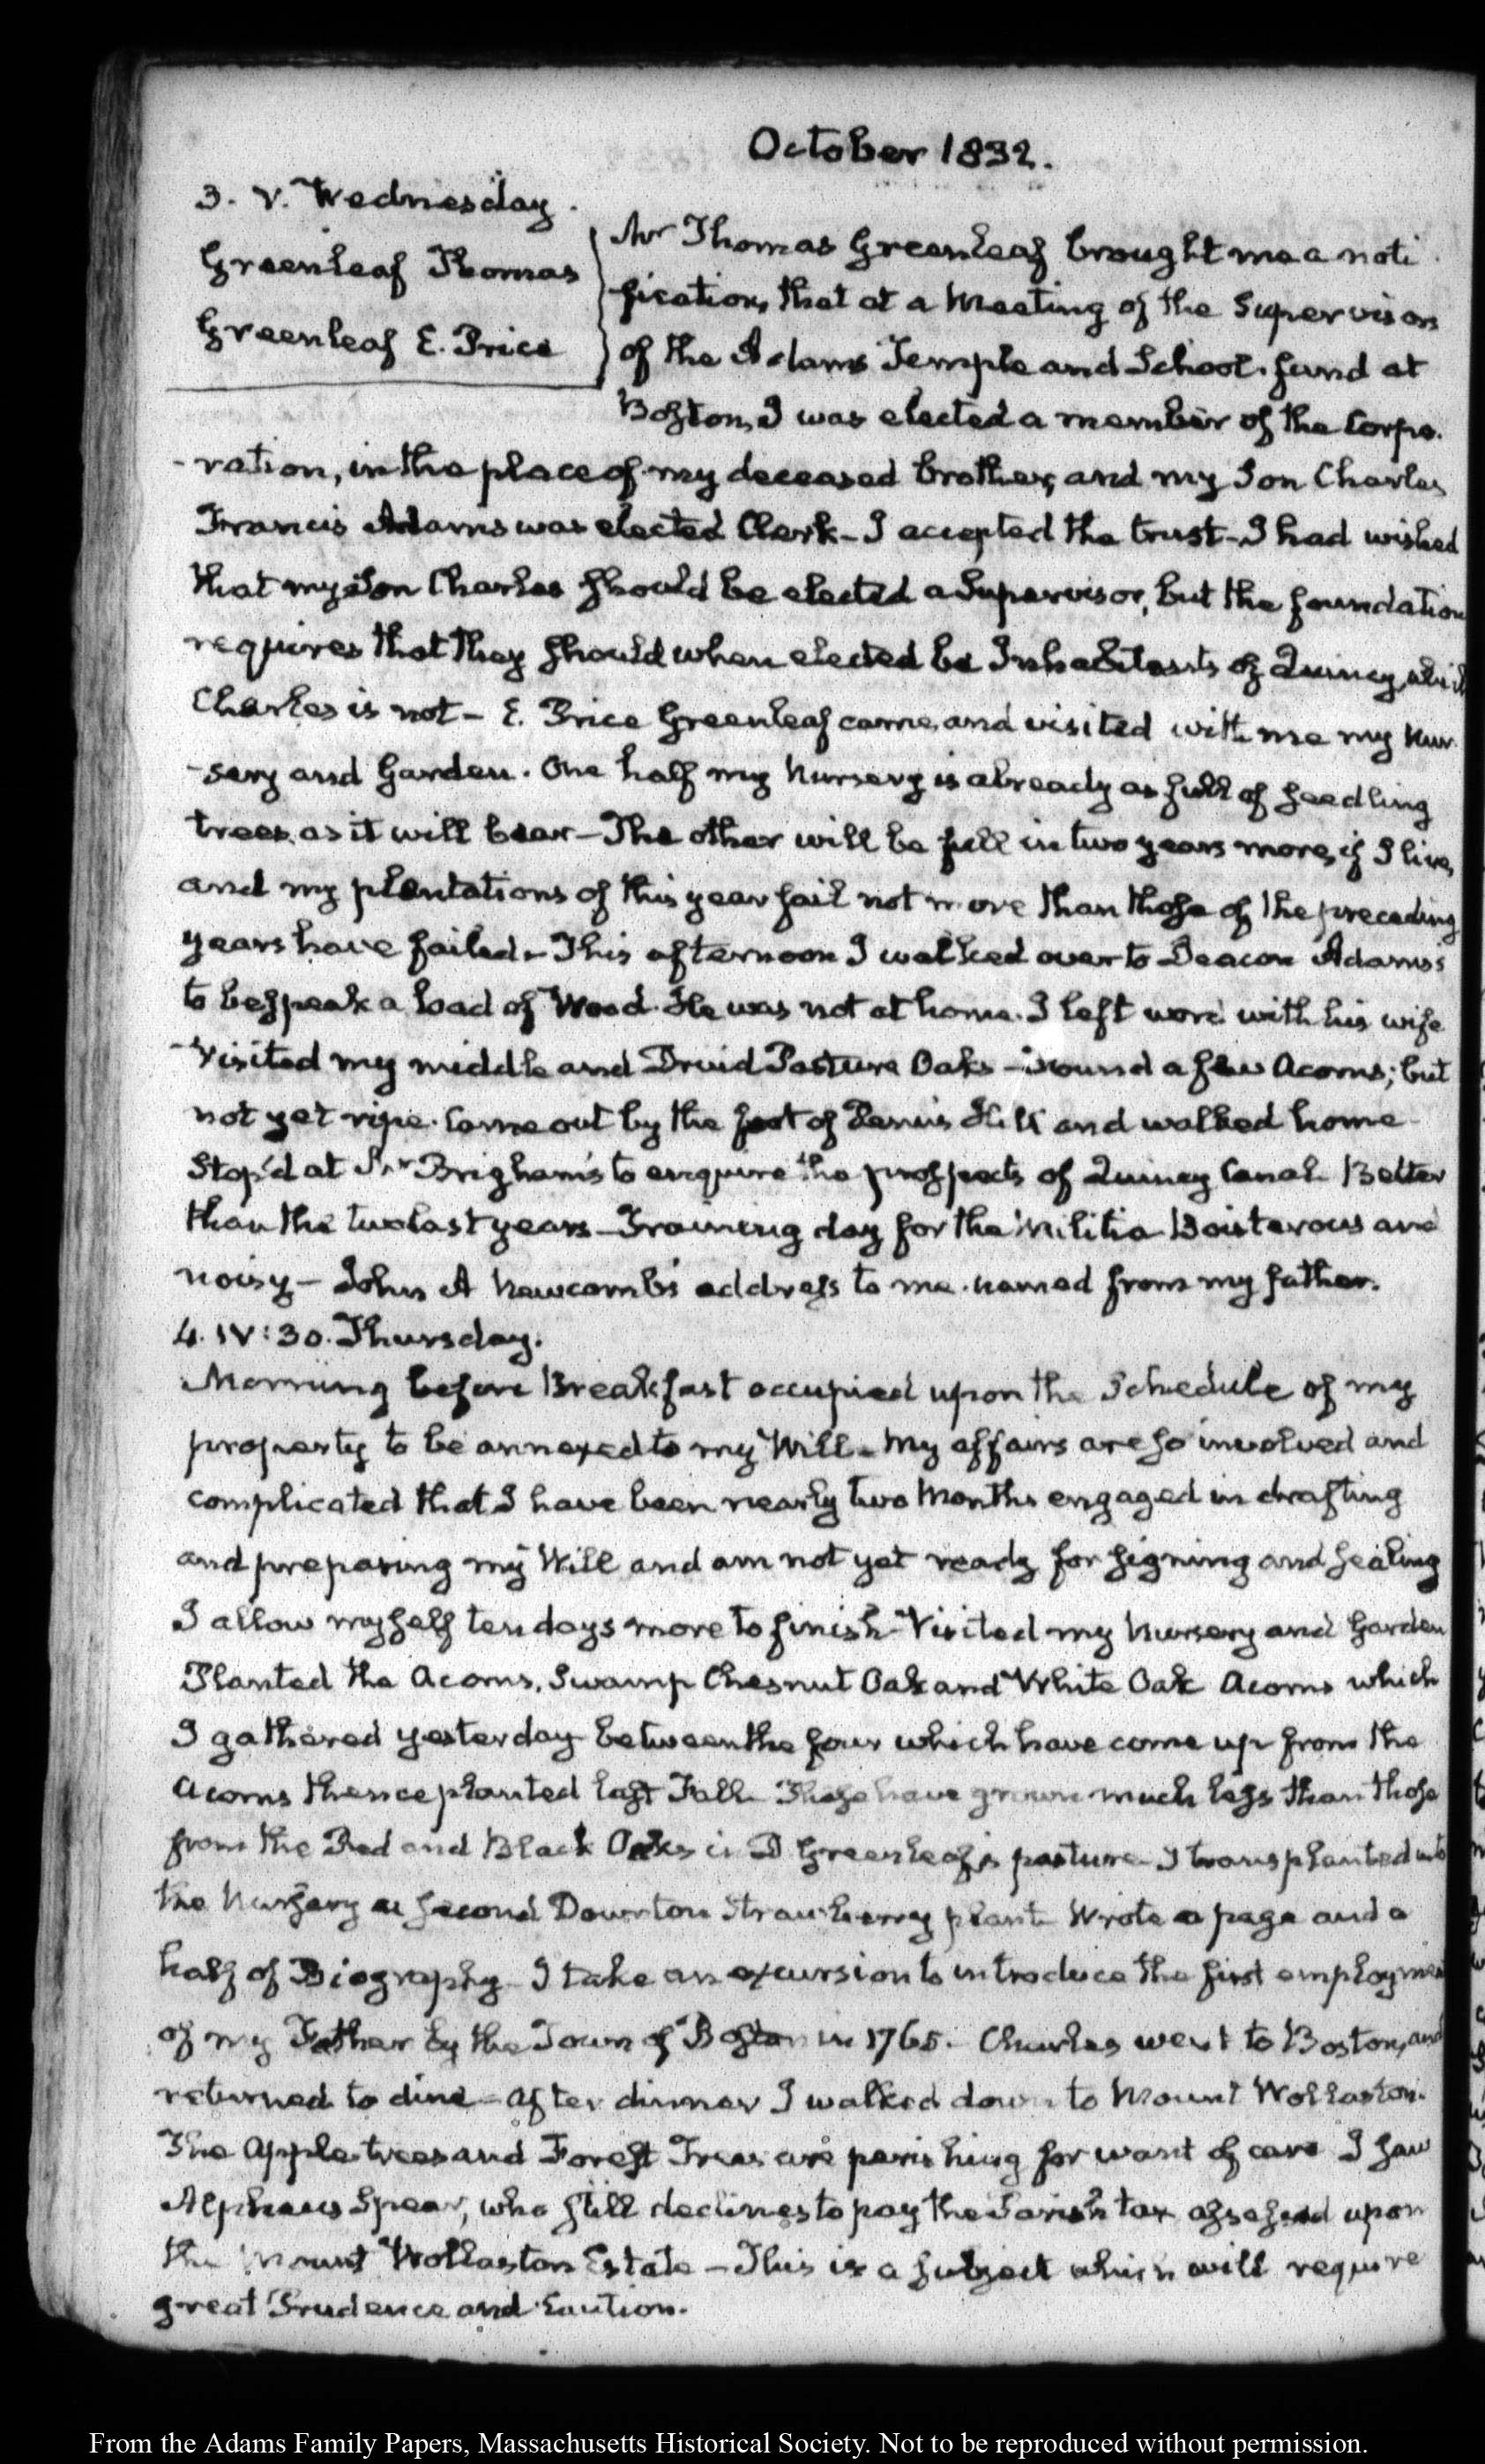 October 1832.
3. V. Wednesday.
Greenleaf Thomas
Greenleaf E. Price
Mr Thomas Greenleaf brought me a noti
fication, that at a Meeting of the Supervisors
of the Adams Temple and School fund at
Boston, I was elected a member of the Corpo.
-ration, in the place of my deceased brother, and my Son Charles
Francis Adams was elected Clerk - I accepted the trust - I had wished
that my Son Charles should be elected a Supervisor, but the foundation
requires that they should when elected be Inhabitants of Quincy, which
Charles is not - E. Price Greenleaf came, and visited with me my Nur
-sery and Garden. One half my Nursery is already as full of seedling
trees as it will bear - The other will be full in two years more, if I live,
and my plantations of this year fail not more than those of the preceding
years have failed - This afternoon I walked over to Deacon Adams's
to bespeak a load of Wood. He was not at home. I left word with his wife
- Visited my middle and Druid Pasture Oaks - Found a few Acorns; but
not yet ripe. Came out by the foot of Penn's Hill and walked home -
Stop'd at Mr Brigham's to enquire the prospects of Quincy Canal. Better
than the two last years - Training day for the Militia - Boisterous and
noisy - John A Newcomb's address to me. named from my father.
4. IV:30. Thursday.
Morning before Breakfast occupied upon the Schedule of my
property to be annexed to my Will - My affairs are so involved and
complicated that I have been nearly two Months engaged in drafting
and preparing my Will and am not yet ready for signing and sealing
I allow myself ten days more to finish - Visited my Nursery and Garden
Planted the Acorns, Swamp Chesnut Oak and White Oak Acorns which
I gathered yesterday between the four which have come up from the
Acorns thence planted last Fall - These have grown much less than those
from the Red and Black Oaks in D Greenleaf's pasture - I transplanted into
the Nursery a second Downton Strawberry plant - Wrote a page and a
half of Biography - I take an excursion to introduce the first employment
of my Father by the Town of Boston in 1765 - Charles went to Boston, and
returned to dine - After dinner I walked down to Mount Wollaston.
The Apple trees and Forest Trees are perishing for want of care I saw
Alpheus Spear, who still declines to pay the Parish tax assessed upon
the Mount Wollaston Estate - This is a subject which will require
great Prudence and Caution.
From the Adams Family Papers, Massachusetts Historical Society. Not to be reproduced without permission.